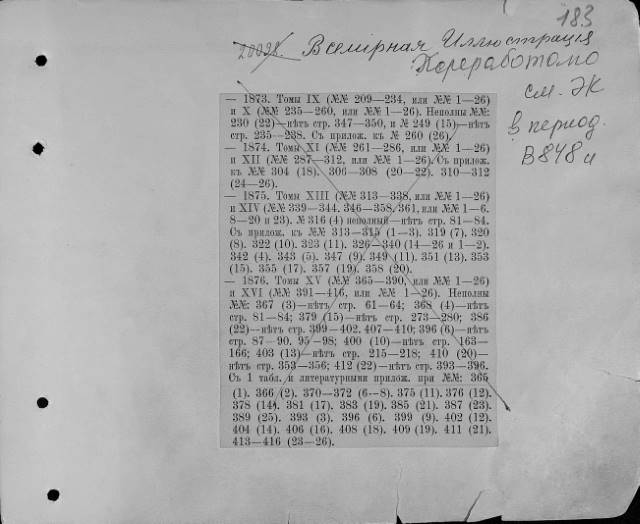 183
20098. Всемірная Иллюстрація
Переработано
см. ЭК
в период.
В 848 и
— 1873. Томы IX (№№ 209—234, или №№ 1—26)
и X (№№ 235—260, или №№ 1—26). Неполны №№:
230 (22)—нѣтъ стр. 347—350, и № 249 (15)—нѣтъ
стр. 235—238. Съ прилож. къ № 260 (26).
— 1874. Томы XI (№№ 261—286, или №№ 1—26)
и XII (№№ 287—312, или №№ 1—26). Съ прилож.
къ №№ 304 (18). 306—308 (20—22). 310—312
(24—26).
— 1875. Томы XIII (№№ 313—338, или №№ 1—26)
и XIV (№№ 339—344, 346—358, 361, или №№ 1—6.
8—20 и 23). № 316 (4) неполный—нѣтъ стр. 81—84.
Съ прилож. къ №№ 313—315 (1—3). 319 (7). 320
(8). 322 (10). 323 (11). 326—340 (14—26 и 1—2).
342 (4). 343 (5). 347 (9). 349 (11). 351 (13). 353
(15). 355 (17). 357 (19). 358 (20).
— 1876. Томы XV (№№ 365—390, или №№ 1—26)
и XVI (№№ 391—416, или №№ 1—26). Неполны
№№: 367 (3)—нѣтъ стр. 61—64; 368 (4)—нѣтъ
стр. 81—84; 379 (15)—нѣтъ стр. 273—280; 386
(22)—нѣтъ стр. 399—402. 407—410; 396 (6)—нѣтъ
стр. 87—90. 95—98; 400 (10)—нѣтъ стр. 163—
166; 403 (13)—нѣтъ стр. 215—218; 410 (20)—
нѣтъ стр. 353—356; 412 (22)—нѣтъ стр. 393—396.
Съ 1 табл. и литературными прилож. при №№: 365
(1). 366 (2). 370—372 (6—8). 375 (11). 376 (12).
378 (14). 381 (17). 383 (19). 385 (21). 387 (23).
389 (25). 393 (3). 396 (6). 399 (9). 402 (12).
404 (14). 406 (16). 408 (18). 409 (19). 411 (21).
413—416 (23—26).